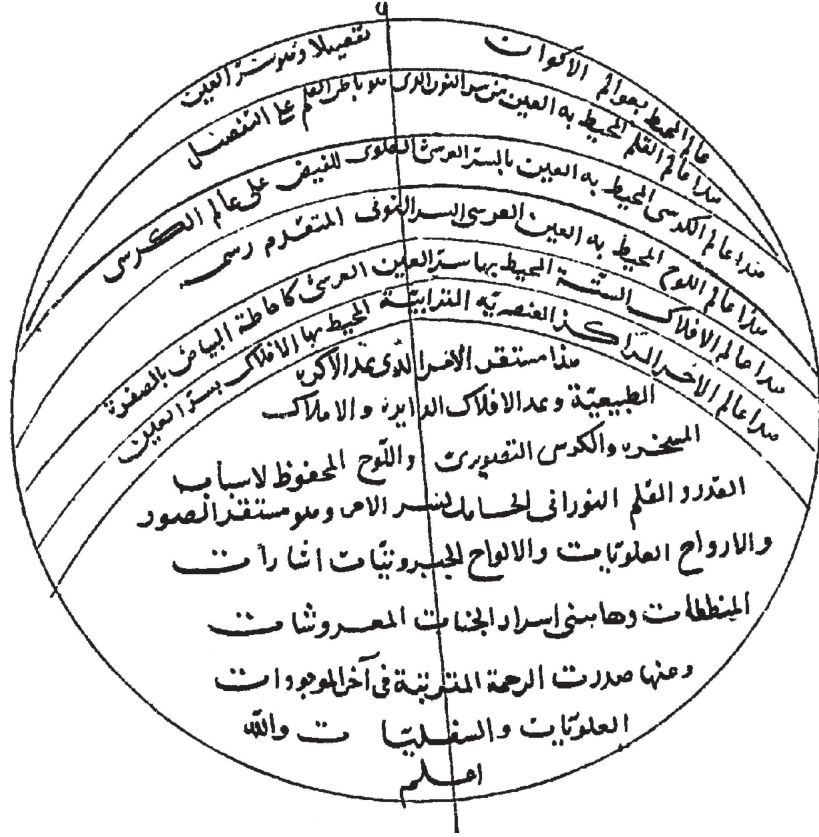 عالم المحيط بعوالم الاكوان تفصيلا وهو ستر العين
هذا عالم القلم المحيط به العين من سر النون الذى هو باطن القلم على التفصيل
هذا عالم الكرسى المحيط به العين بالستر العرشى العلوى للفيض على عالم الكرسى
هذا عالم اللوح المحيط به العين العرسى السر النونى المتقدم رسمى
هذا عالم الافلاك الستة المحيط بها ستر العين العرشى كاحاطة البياض بالصفرة
هذا عالم الاخر العنصريه الترابيّة المحيط بها الأفلاك بستر العين
هذا مستقر الاخر الذى عد الاكر
الطبيعيّة وعد الافلاك الدايره والاملاك
المسخره والكرسى التصويرى واللوح المحفوظ لاسباب
القدر و القلم النورانى الحامل لسر الامر وهو مستقر الصور
والارواح العلويات والالواح الجبروتيّات اشارات
وها بنى اسرار الجنات المعروشات
وعنها صدرت الرحمة فى آخر الموجودات
العلويات والسفليّات والله
اعلم